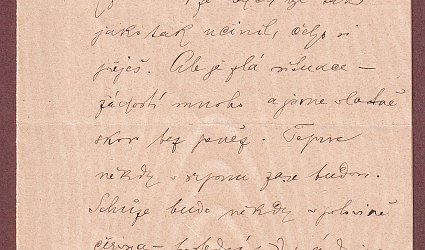 jakstak učinil, čeho si
přeješ. Ale je zlá situace –
žádostí mnoho a jsme vlastně
skoro bez peněz. Teprve
někdy v srpnu zase budou.
Schůze bude někdy v polovině
června –